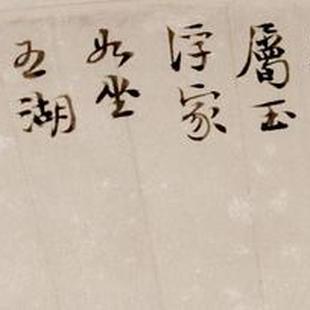 玉
浮家
如坐
五湖